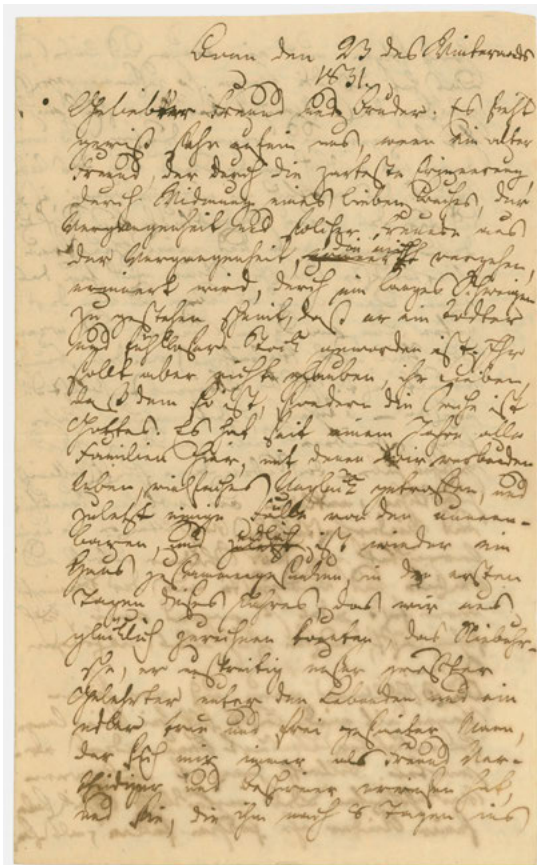 Bonn den 23 des Wintermonds
1831.
Geliebter Freund und Bruder. Es sieht
gewiß sehr aus, wenn ein alter
Freund, der durch die zarteste Erinnerung,
durch Widmung eines lieben Buches, der
Vergangenheit und solcher Freuden aus
der Vergangenheit, die nicht vergehen,
erinnert wird, durch ein langes Schweigen
zu gestehen scheint, daß er ein todter
und fühlloser geworden ist. Ihr
sollt aber nicht glauben, ihr Lieben,
daß dem so ist, sondern die Sache ist
Gottes. Es hat seit einem Jahre alle
Familien hier, mit denen wir verbunden
leben, vielfaches Unglück getroffen, und
zuletzt einige Fälle von den
und ist wieder ein
Haus zusammengefallen, in den ersten
Tagen dieses Jahres, das wir uns
glücklich zurechnen konnten, das Niebuhr-
sche, er unstreitig unser grösster
Gelehrter unter den Lebenden und ein
edler treu und frei gesinnter Mann,
der sich mir immer als Freund Ver-
theidiger und Beschirmer erwiesen hat,
und sie, die ihm nach 8 Tagen ins